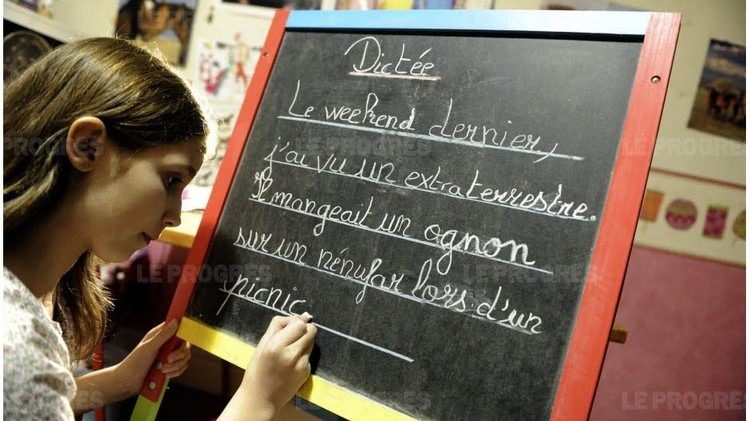 Dictée
Le weekend dernier,
j'ai vu un extraterrestre.
Il mangeait un ognon
sur un nénufar lors d'un
picnic
LE PROGRES
LE PROGRES
LE PROGRES
LE PROGRES
LE PROGRES
LE PROGRES